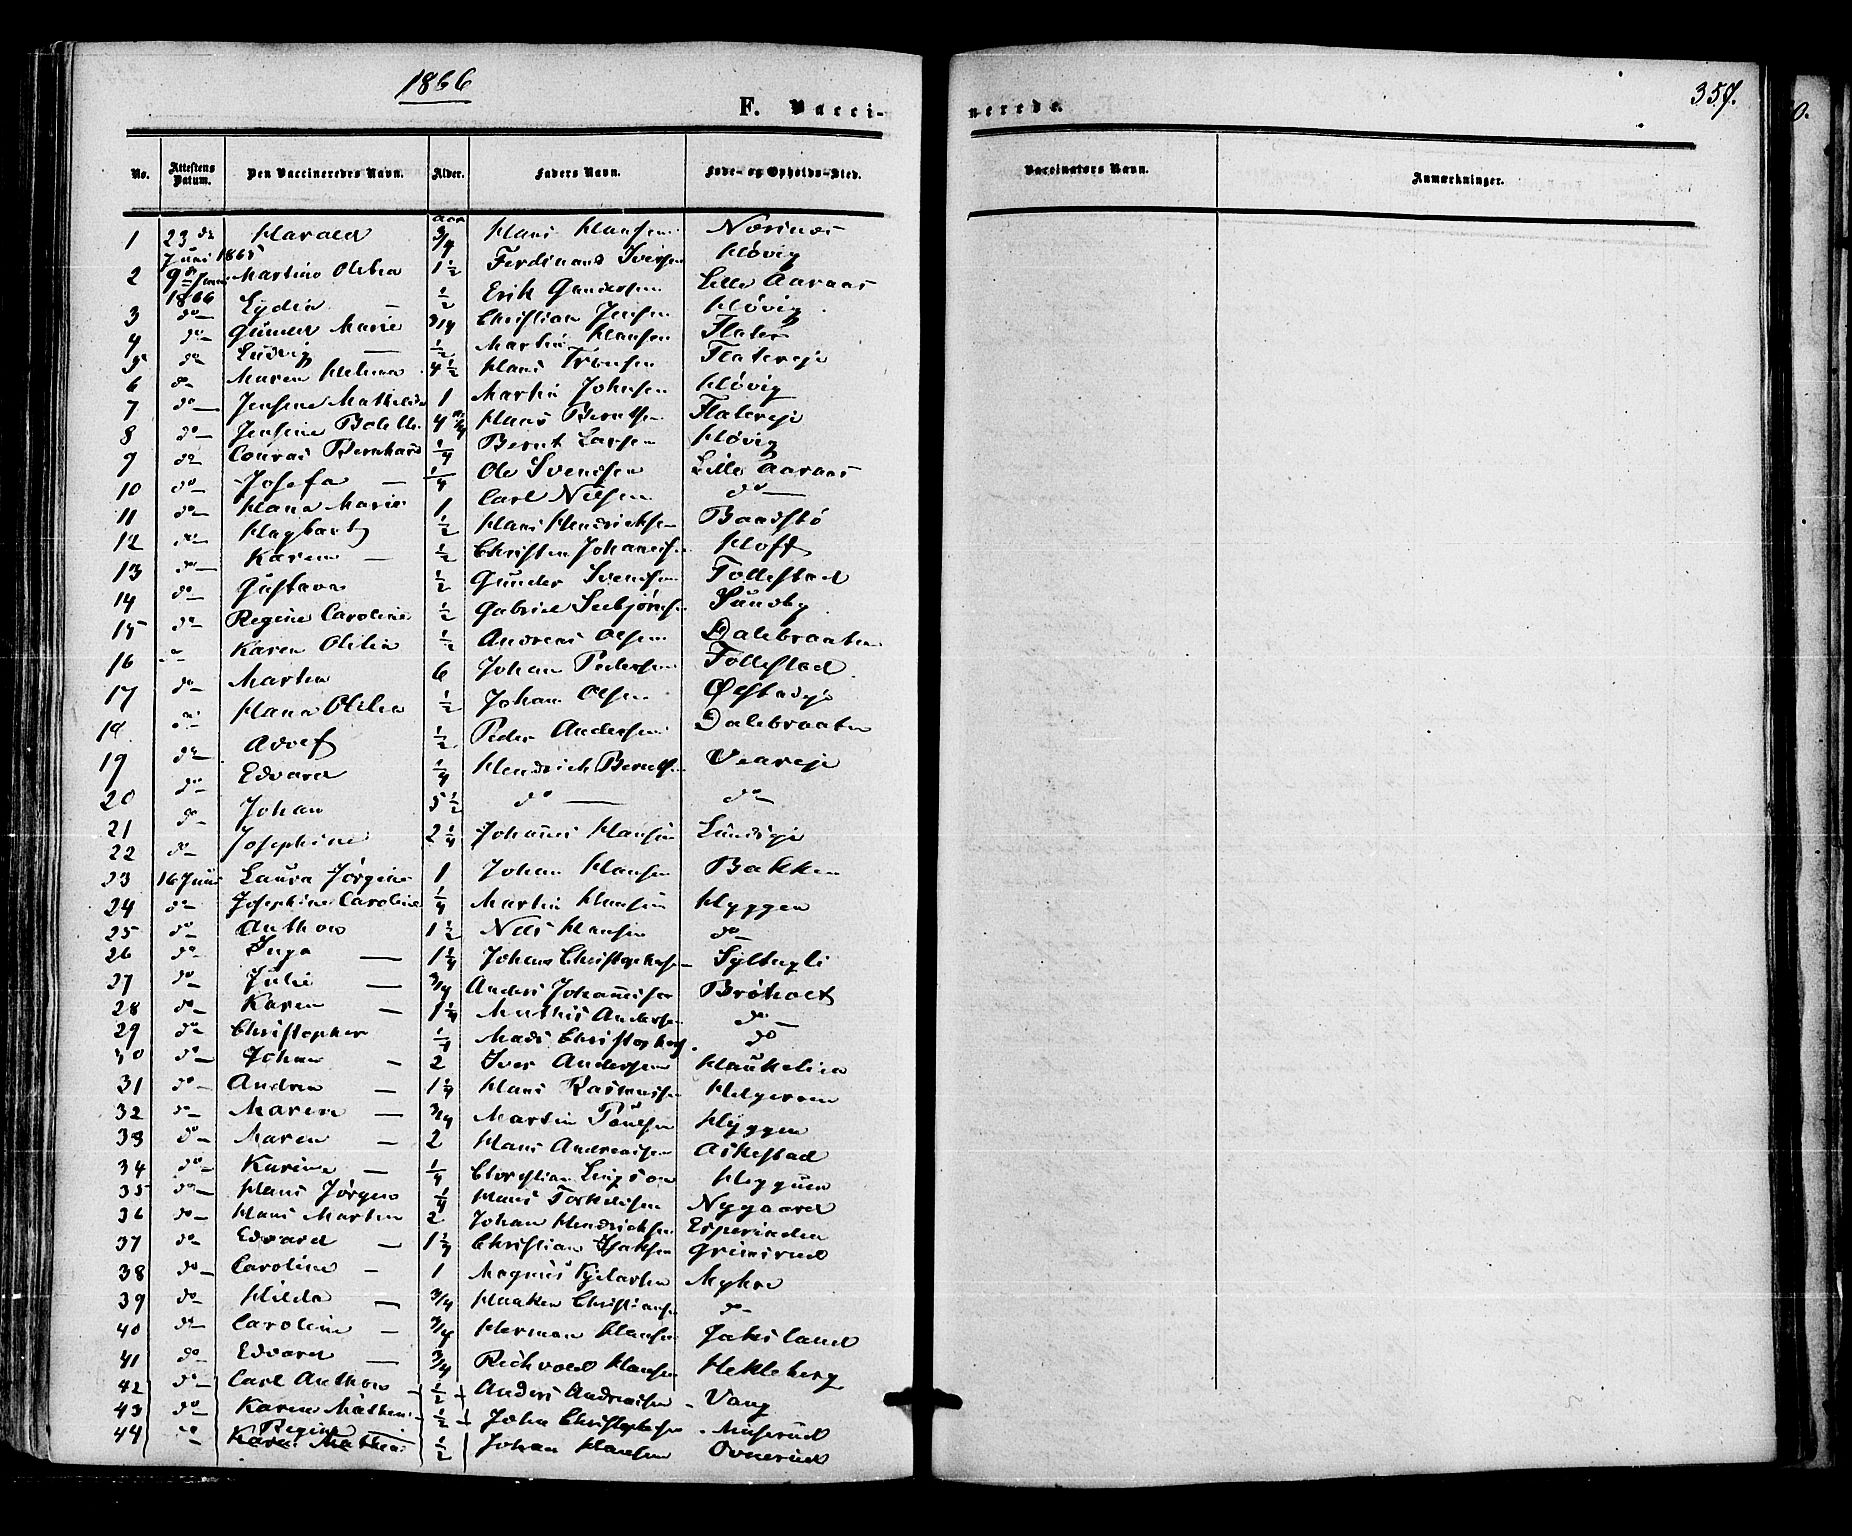 1866
F. Vacci-
nerede.
359.
No. Attestens Datum. Den Vaccineredes Navn. Alder. Faders Navn. Føde- og Opholds-Sted. Vaccinators Navn. Anmærkninger.
Aar
1 23de Juni 1865 Harald 3/4 Hans Hansen Næsnæs
2 9de Juni 1866 Martine Olilia 1 1/2 Ferdinand Iversen Høvig
3 do Lydia — 1/2 Erik Gundersen Lille Aaraas
4 do Gunild Marie 3/4 Christian Jensen Høvig
5 do Ludvig — 1/2 Martin Hansen Flater
6 do Maren Helena 4 1/2 Hans Tronsen Flatereje
7 do Jensine Mathilde 1 Martin Johnsen Høvig
8 do Jensine Bolette 4 Hans Berntsen Flatereje
9 do Conrad Bernhard 1/4 Bernt Larsen Høvig
10 do Josefa — 1/4 Ole Svendsen Lille Aaraas
11 do Hana Marie 1 Carl Nilsen do
12 do Hagbart 1/2 Hans Hendrichsen Baadstø
13 do Karen — 1/2 Christen Johannesen Hoff
14 do Gustava 1/2 Gunder Svendsen Tollestad
15 do Regine Caroline 1/2 Gabriel Seebjørnsen Sundby
16 do Karen Otilia 1/2 Andreas Olsen Dalebraaten
17 do Martin 6 Johan Pedersen Tollestad
18 do Hana Olilia 1/2 Johan Olsen Øfstadeje
19 do Adolf 1/2 Peder Andersen Dalebraaten
20 do Edvard 1/4 Hendrich Berntsen Veareje
21 do Johan 5 1/2 do — do
22 do Josephine 2 1/4 Johannes Hansen Lundseje
23 16 Juni Laura Jørgine 1 Johan Hansen Bakken
24 do Josephine Caroline 1/4 Martin Hansen Hyggen
25 do Anthon 1 1/2 Nils Hansen do
26 do Inga — 1 1/4 Johans Christophersen Syltugli
27 do Julie — 3/4 Anders Johannesen Brøholt
28 do Karen — 1 1/4 Mathis Andersen do
29 do Christopher 1/4 Mads Christophers. do
30 do Johan — 2 Iver Andersen Haukelien
31 do Andrea — 1 1/4 Hans Rasmussen Helgerøen
32 do Maren — 3/4 Martin Poulsen Hyggen
33 do Maren — 2 Hans Andreassen Askestad
34 do Karine — 1/4 Christian Hyggen
35 do Hans Jørgen 1/4 Hans Torkelsen Nygaard
36 do Hans Martin 2 Johan Hendrichsen Esperuden
37 do Edvard — 1 1/4 Christian Isaksen Grimsrud
38 do Caroline — 1 Magnus Kjelarsen Myhre
39 do Hilda — 3/4 Haaken Christiansen do
40 do Caroline — 3/4 Herman Hansen Jaksland
41 do Edvard — 3/4 Richvold Hansen Hekleberg
42 do Carl Anthon 1/2 Anders Andreassen Vang
43 do Karen Mathea 1/2 Johan Christophersen Muserud
44 do Karen Mathea Regine 1/2 Johan Hansen Ovnerud